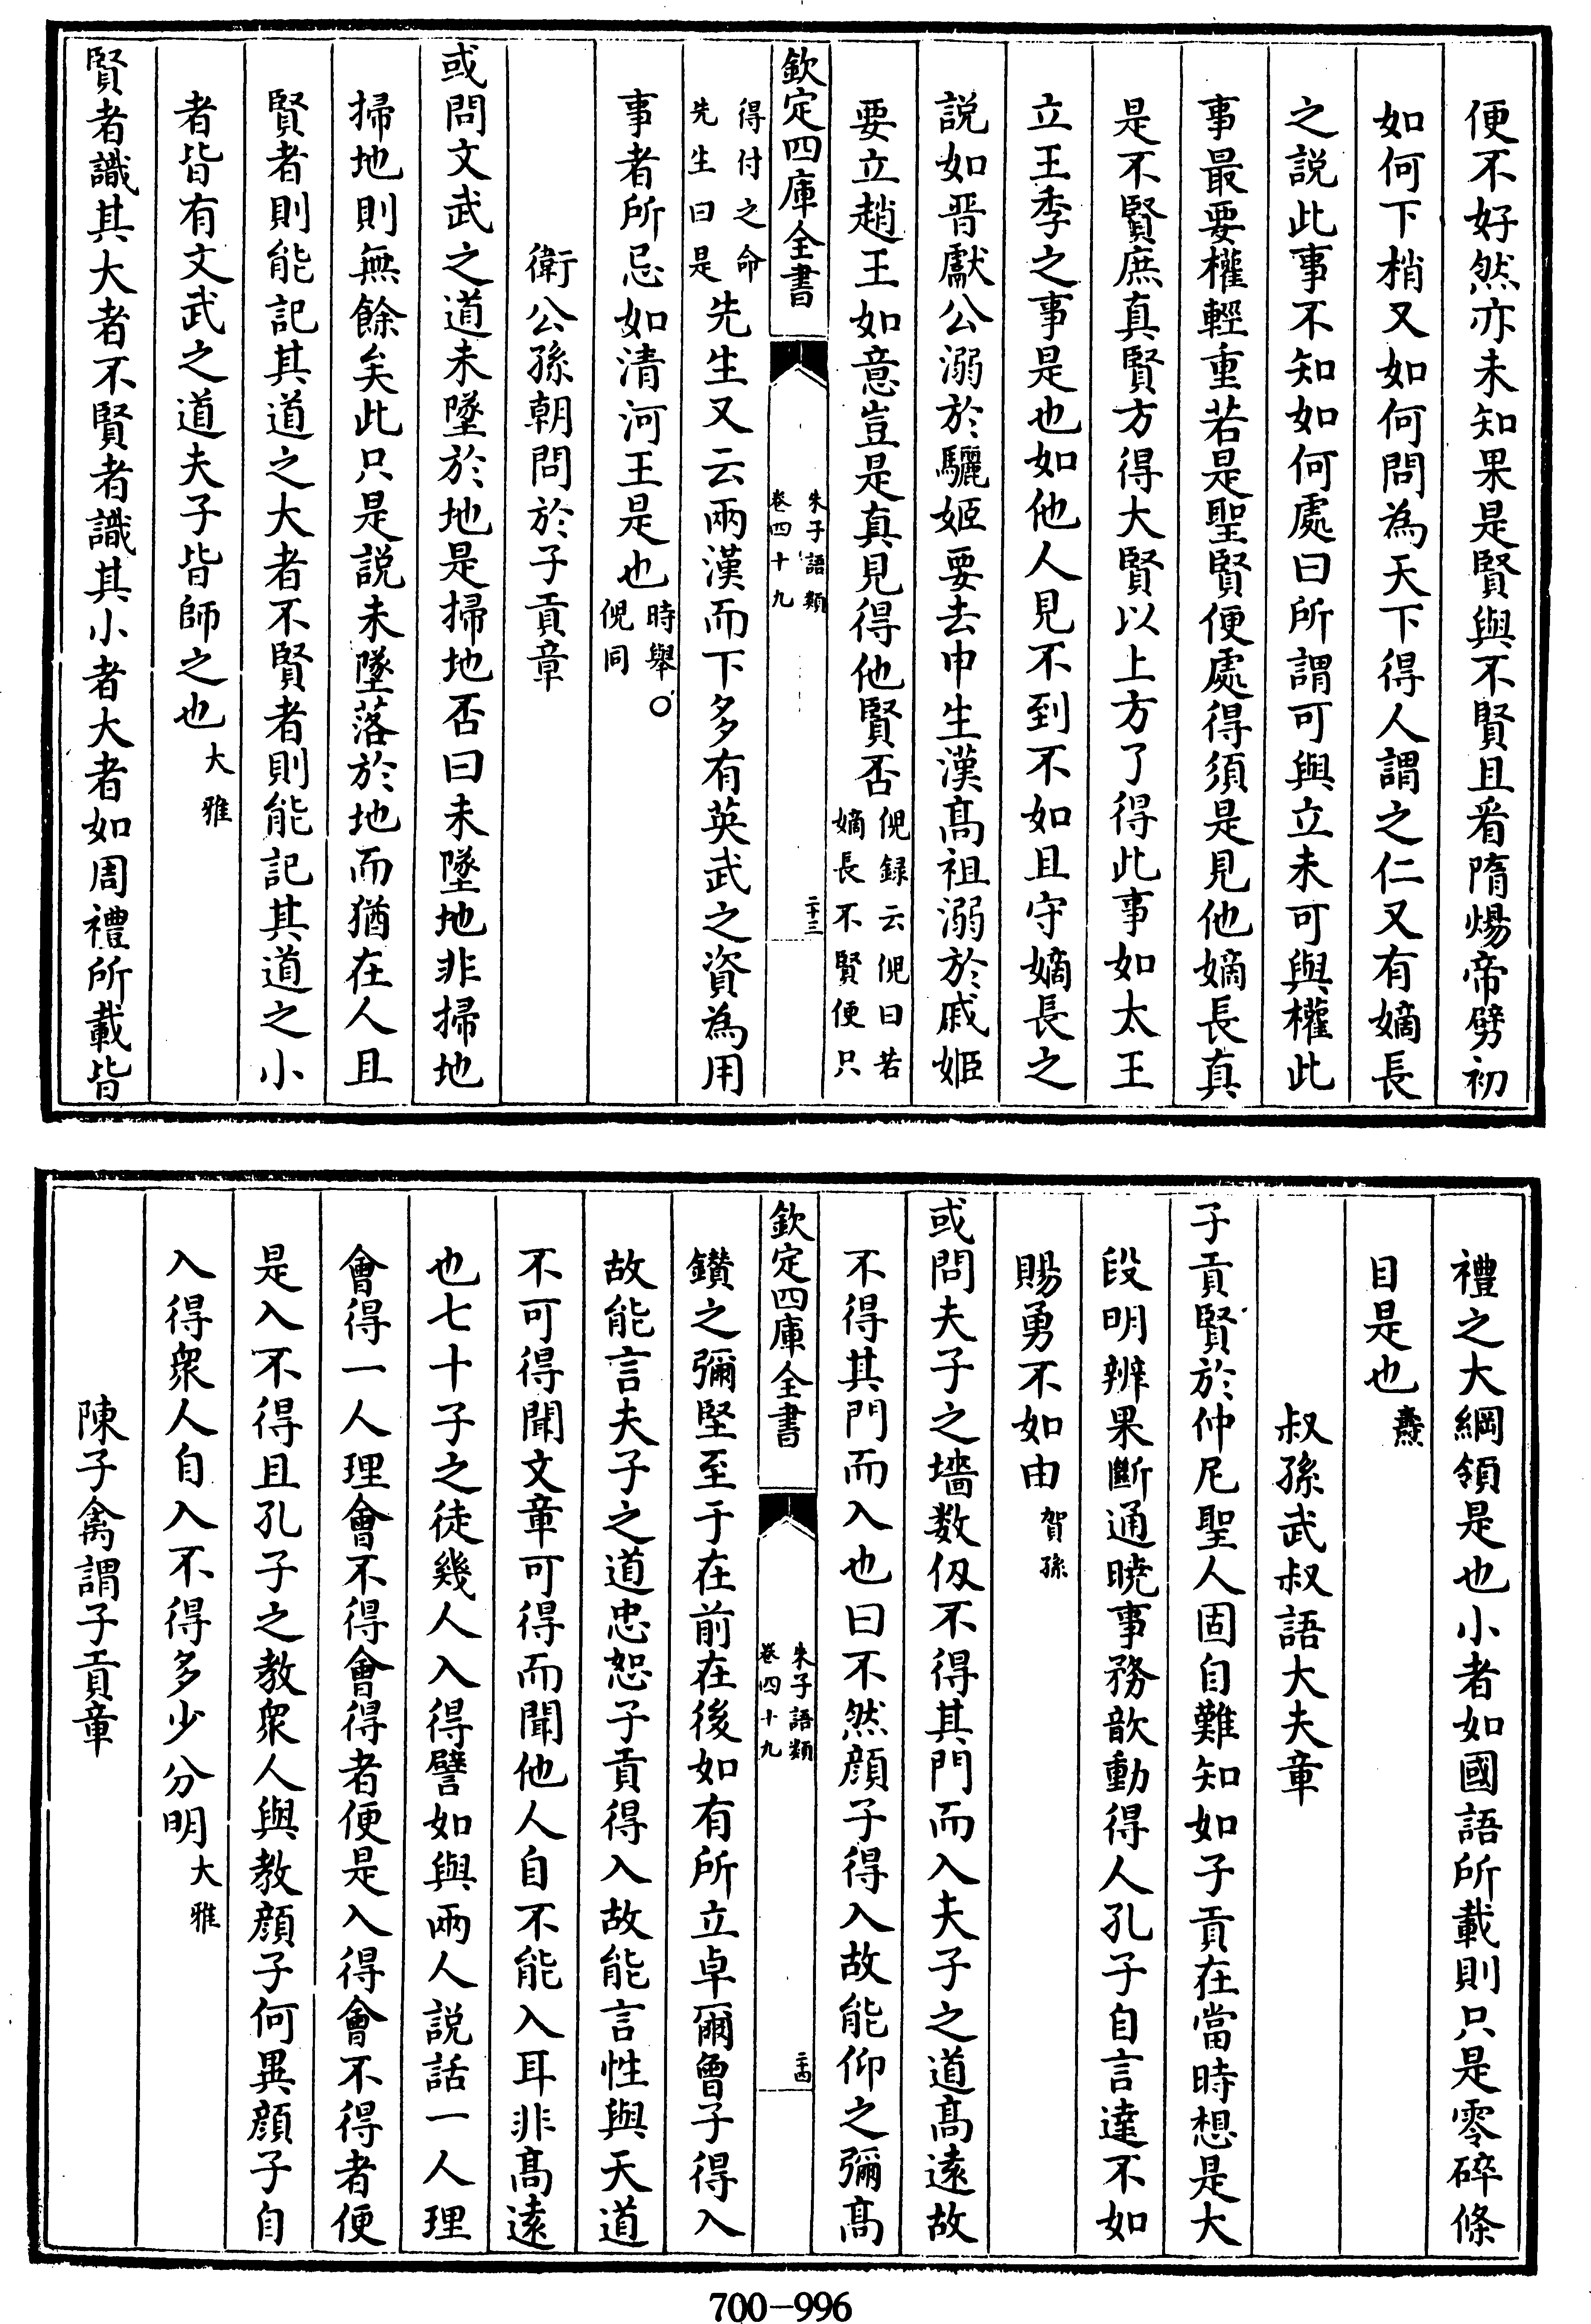 便不好然亦未知果是賢與不賢且看隋煬帝劈初
如何下梢又如何問為天下得人謂之仁又有嫡長
之説此事不知如何處曰所謂可與立未可與權此
事最要權輕重若是聖賢便處得須是見他嫡長真
是不賢庶真賢方得大賢以上方了得此事如太王
立王季之事是也如他人見不到不如且守嫡長之
説如晋獻公溺於驪姬要去申生漢髙祖溺於戚姬
要立趙王如意豈是真見得他賢否倪録云倪曰若
嫡長不賢便只
欽定四庫全書
朱子語類
卷四十九
二十三
得付之命
先生曰是先生又云兩漢而下多有英武之資為用
事者所忌如清河王是也時舉○
倪同
衛公孫朝問於子貢章
或問文武之道未墜於地是掃地否曰未墜地非掃地
掃地則無餘矣此只是説未墜落於地而猶在人且
賢者則能記其道之大者不賢者則能記其道之小
者皆有文武之道夫子皆師之也大雅
賢者識其大者不賢者識其小者大者如周禮所載皆
禮之大綱領是也小者如國語所載則只是零碎條
目是也燾
叔孫武叔語大夫章
子貢賢於仲尼聖人固自難知如子貢在當時想是大
段明辨果斷通曉事務歆動得人孔子自言達不如
賜勇不如由賀孫
或問夫子之墻数仭不得其門而入夫子之道髙遠故
不得其門而入也曰不然顔子得入故能仰之彌髙
欽定四庫全書
朱子語類
卷四十九
二十四
鑚之彌堅至于在前在後如有所立卓爾曾子得入
故能言夫子之道忠恕子貢得入故能言性與天道
不可得聞文章可得而聞他人自不能入耳非髙遠
也七十子之徒幾人入得譬如與兩人説話一人理
會得一人理會不得會得者便是入得會不得者便
是入不得且孔子之教衆人與教顔子何異顔子自
入得衆人自入不得多少分明大雅
陳子禽謂子貢章
700-996